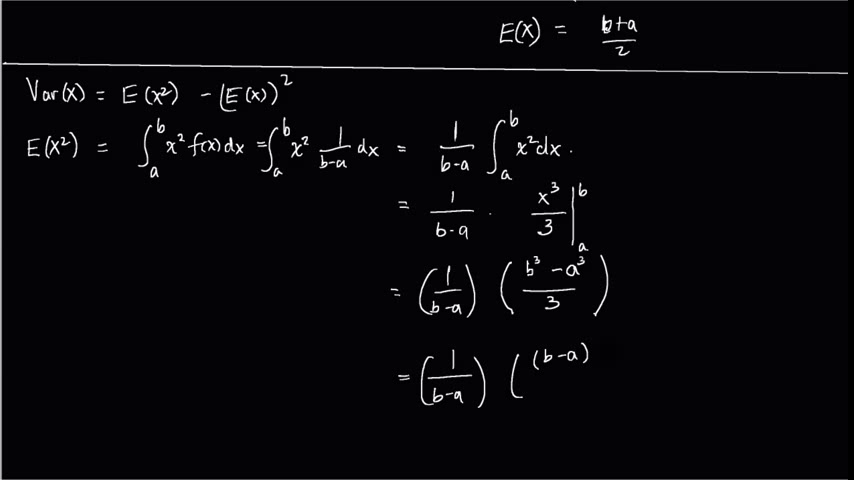 E(X) = b+a/2
Var(x) = E(x²) - (E(x))²
E(X²) = ∫ₐᵇ x² f(x) dx = ∫ₐᵇ x² 1/(b-a) dx = 1/(b-a) ∫ₐᵇ x² dx.
= 1/(b-a) · x³/3 |ₐᵇ
= (1/(b-a)) ((b³ - a³)/3)
= (1/(b-a)) ( (b-a)